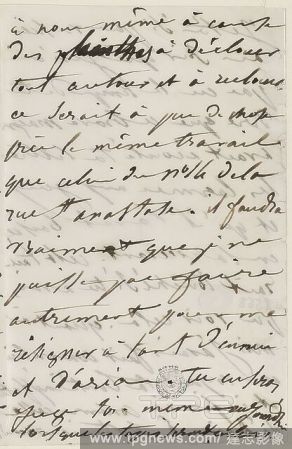 à nous même à cause
des plinthes à déclouer
tout autour et à reclouer
ce serait à peu de chose
près le même travail
que celui du n° 14 de la
rue St anastase. il faudra
vraiment que je ne
puisse pas faire
autrement pour me
résigner à tant d'ennui
et d'aria. Tu en feras
toi même
lorsque
www.tpgnews.com / 達志影像